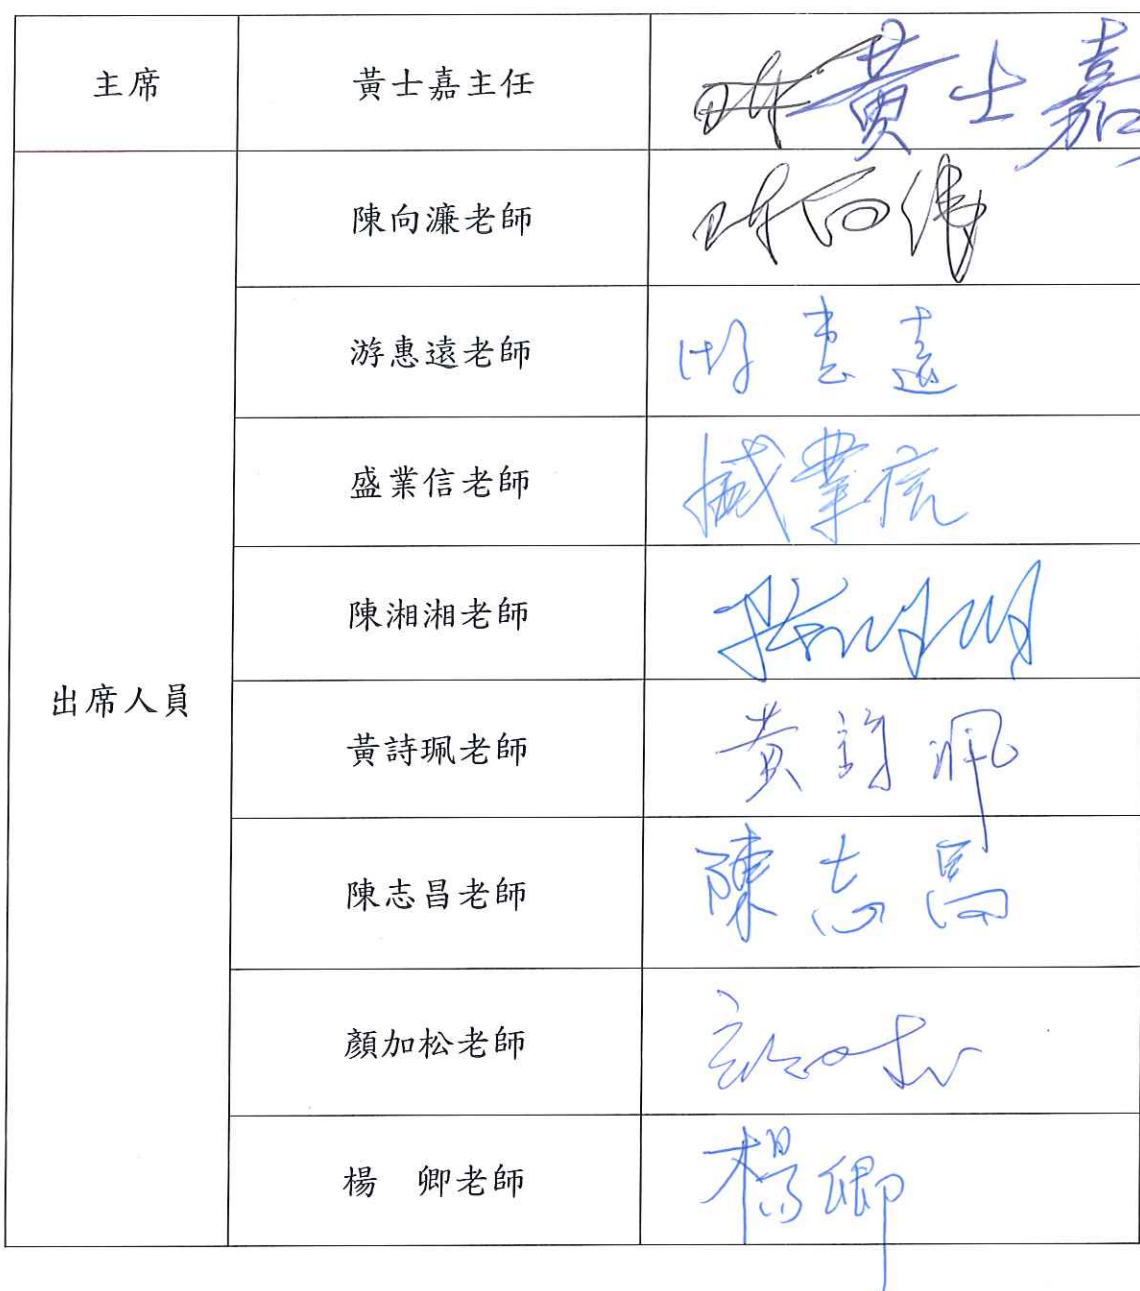 主席
黃士嘉主任
黃士嘉
出席人員
陳向濂老師
游惠遠老師
游惠遠
盛業信老師
盛業信
陳湘湘老師
黃詩珮老師
黃詩珮
陳志昌老師
陳志昌
顏加松老師
楊　卿老師
楊卿